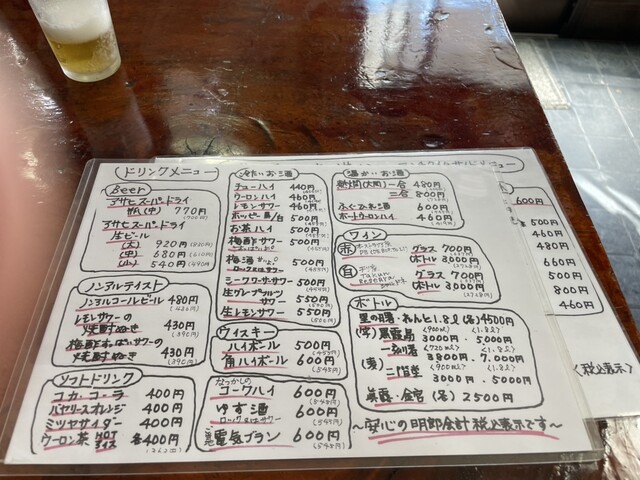 ドリンクメニュー
Beer
アサヒスーパードライ
ビン(中) 770円
(700円)
アサヒスーパードライ
生ビール
(大) 920円
(中) 680円
(小) 540円
ノンアルテイスト
ノンアルコールビール 480円
レモンサワーの
焼酎ぬき 430円
(390円)
梅酢サワーの
焼酎ぬき 430円
(390円)
ソフトドリンク
コカ・コーラ 400円
バヤリースオレンジ 400円
ミツヤサイダー 400円
ウーロン茶 HOT アイス 各400円
冷たいお酒
チューハイ 440円
ウーロンハイ 460円
レモンサワー 460円
ホッピー 500円
お茶ハイ 500円
梅酢サワー 500円
梅酒 500円
シークワーサーサワー 500円
生グレープフルーツ
サワー 550円
生レモンサワー 550円
(500円)
ウィスキー
ハイボール 500円
角ハイボール 600円
(545円)
なつかしの
コークハイ 600円
(545円)
ゆず酒 600円
(545円)
電気ブラン 600円
(545円)
温かいお酒
熱燗(大関) 一合 480円
二合 800円
ふぐひれ酒 600円
ホットウーロンハイ 460円
ワイン
赤
グラス 700円
ボトル 3,000円
白
チリ産
グラス 700円
ボトル 3,000円
ボトル
里の曙・れんと1.8ℓ(各)4500円
(芋)黒霧島 3000円 5000円
(麦)二階堂 3000円 5000円
3800円 7,000円
眞露・金宮 (各) 2500円
〜安心の明朗会計 税込表示です〜
メニュー
600円
500円
460円
480円
660円
500円
800円
460円
〈税込表示〉